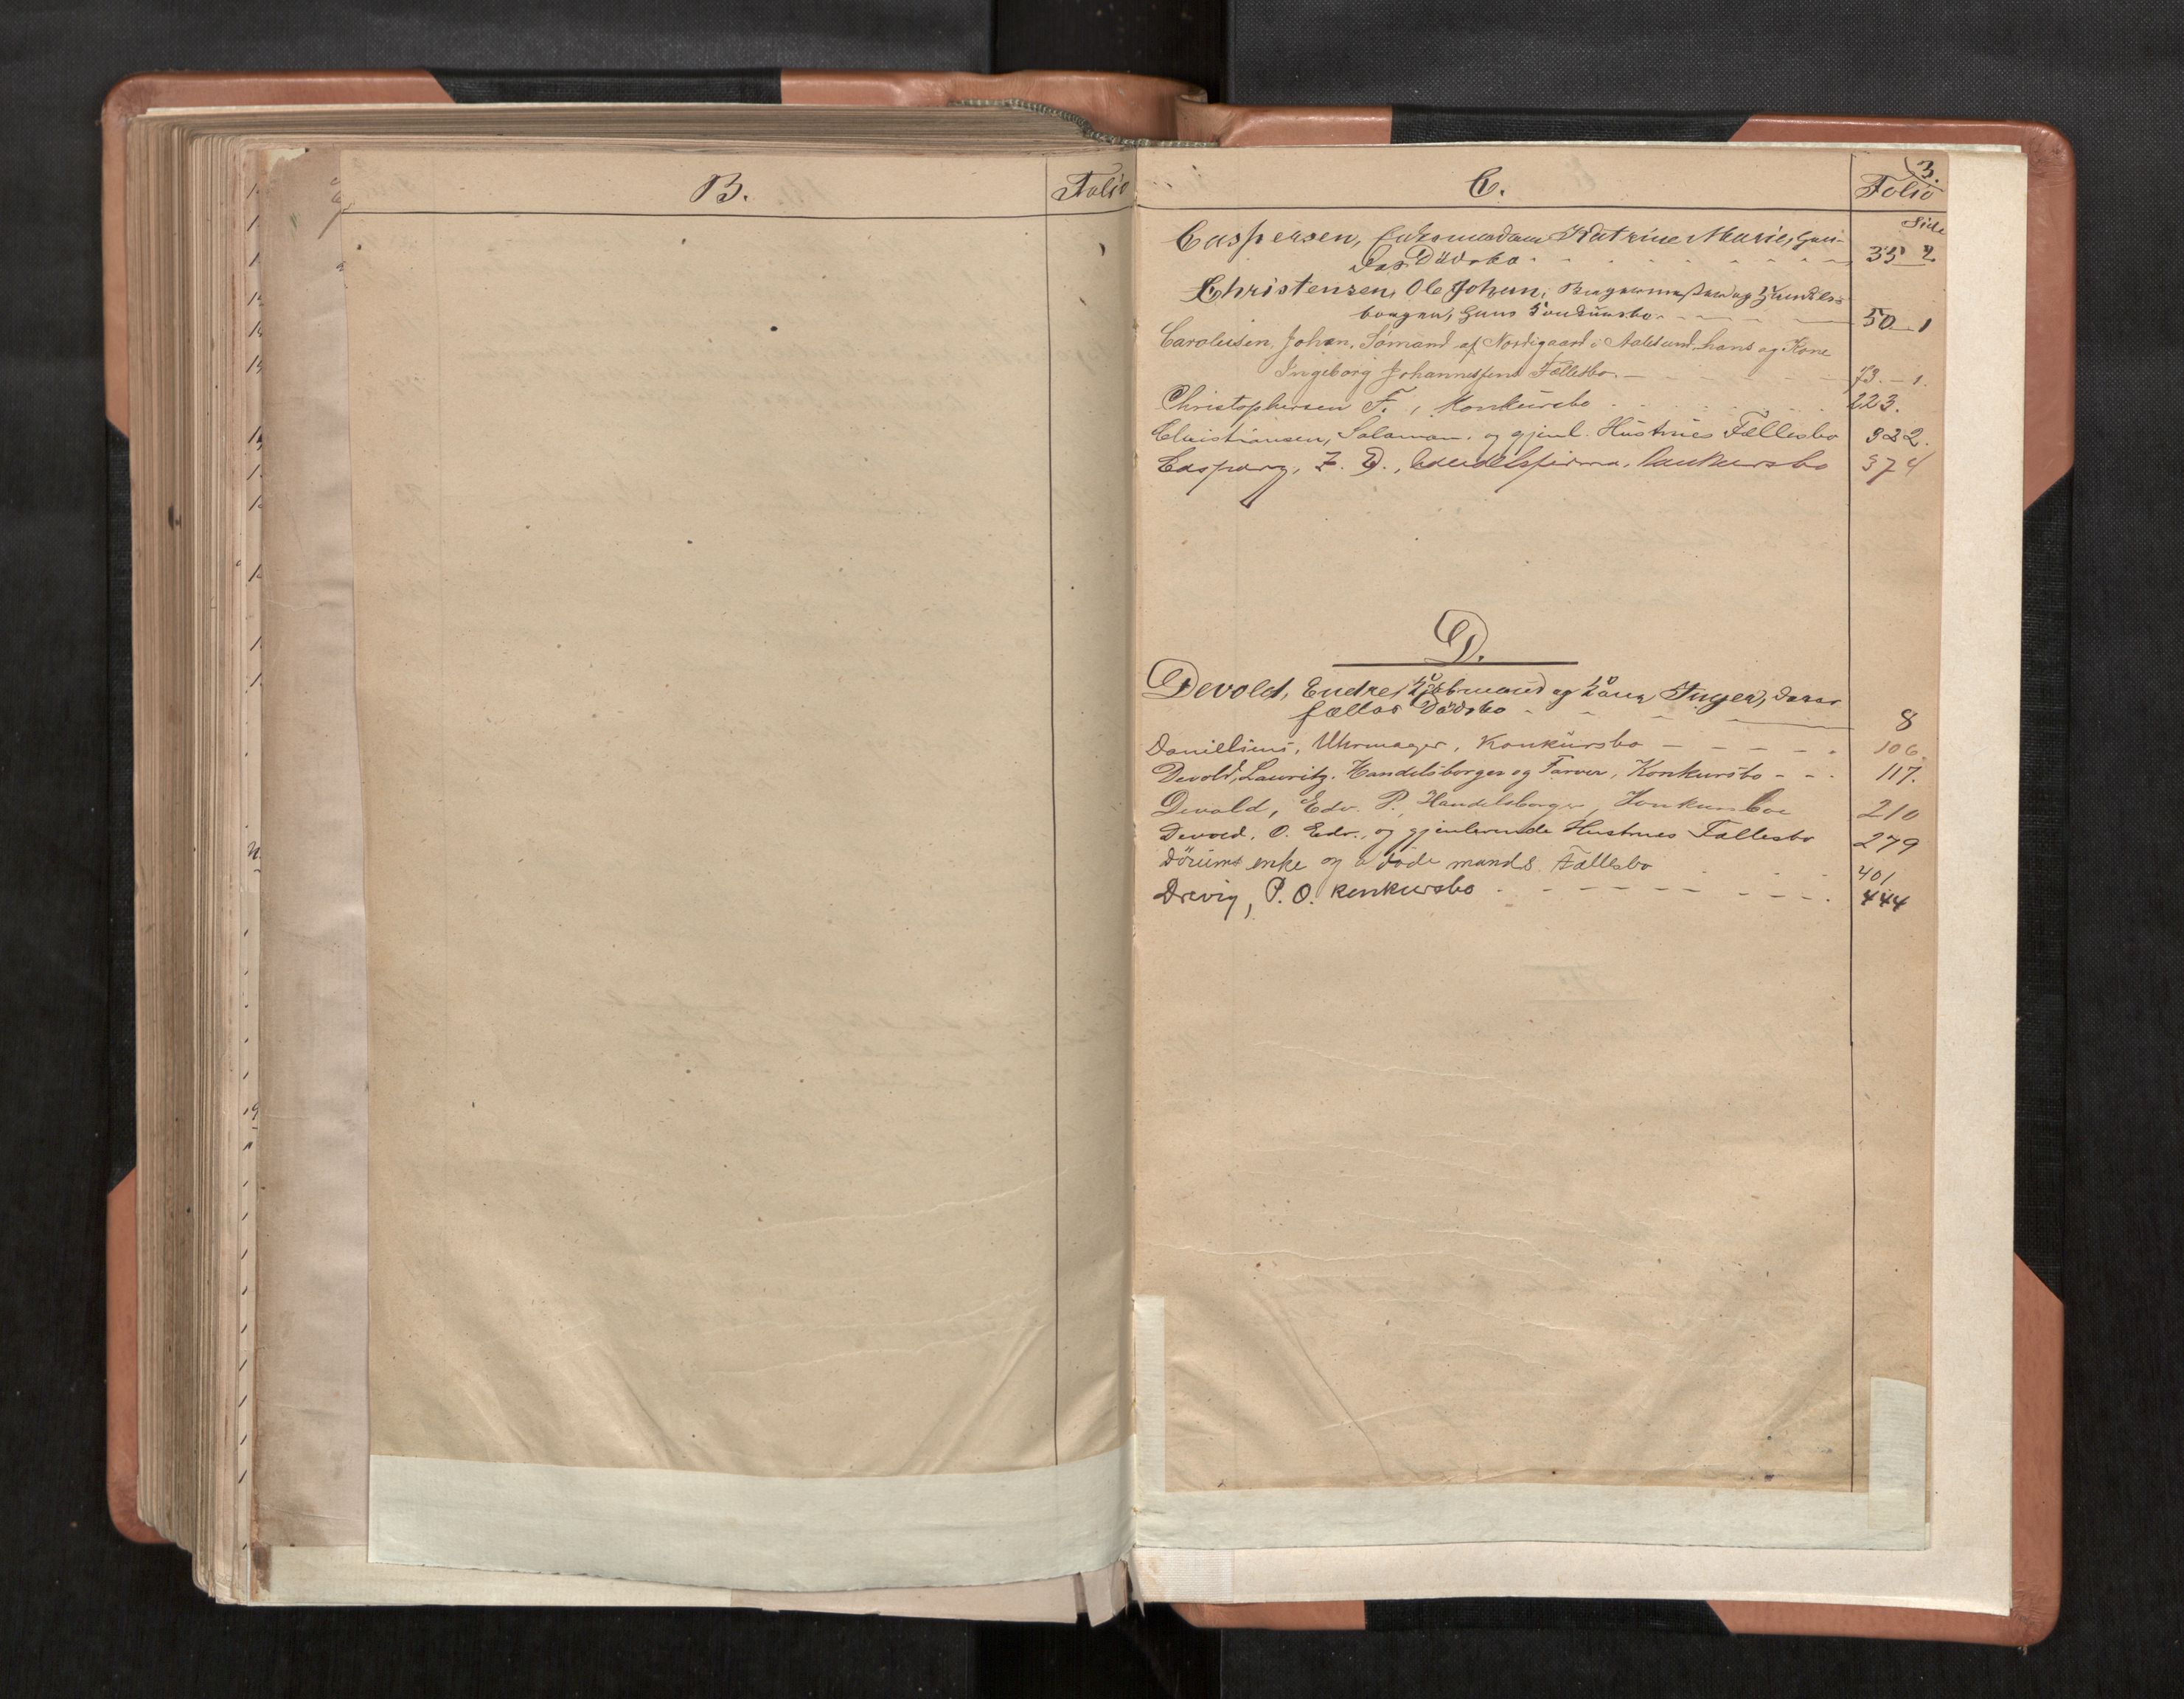 B.
Folio
C.
3.
Folio
Side
Caspersen, Enkemadam Katrine Marie, hen-
des Dödsbo - - - - - 35 2
Christensen, Ole Johan, Bagermester og Handels-
borger, hans Konkursbo - - - 50 1
Carolussen, Johan, Sømand af Nordigaard i Aalesund hans og Kone
Ingeborg Johannessens Fællesbo. - - - - 73. - 1.
Christophersen F., Konkursbo . . . . . 223.
Christiansen, Salamon, og gjenl. Hustrues Fællesbo 332.
Caspary, Z. D., Handelsfirma, Konkursbo 374
D.
Devold, Endre, Kjøbmand og Kone Inger, deres
fælles Dödsbo - - - - 8
Danielsens, Uhrmager, Konkursbo - - - - - 106.
Devold, Lauritz. Handelsborger og Farver, Konkursbo - - - 117.
Devold, Edv. P., Handelsborger, Konkursboe 210
Devold, O. Edv., og gjenlevende Hustrues Fællesbo 279
Dörums enke og døde mands Fællesbo - - - 401
Drevig, P. O. konkursbo - - - - - - - - 444